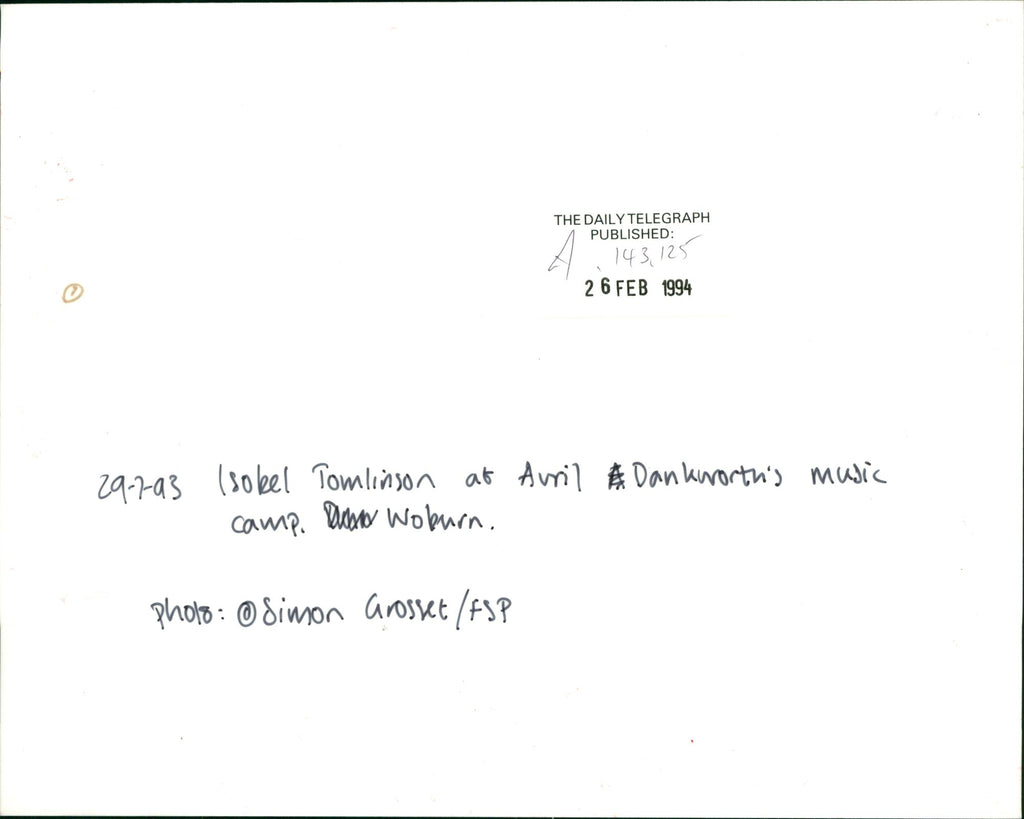 THE DAILY TELEGRAPH
PUBLISHED:
A 143,125
26 FEB 1994
29-7-93 Isobel Tomlinson at Avril Dankworth's music
camp. Woburn.
photo: © Simon Grosset/FSP